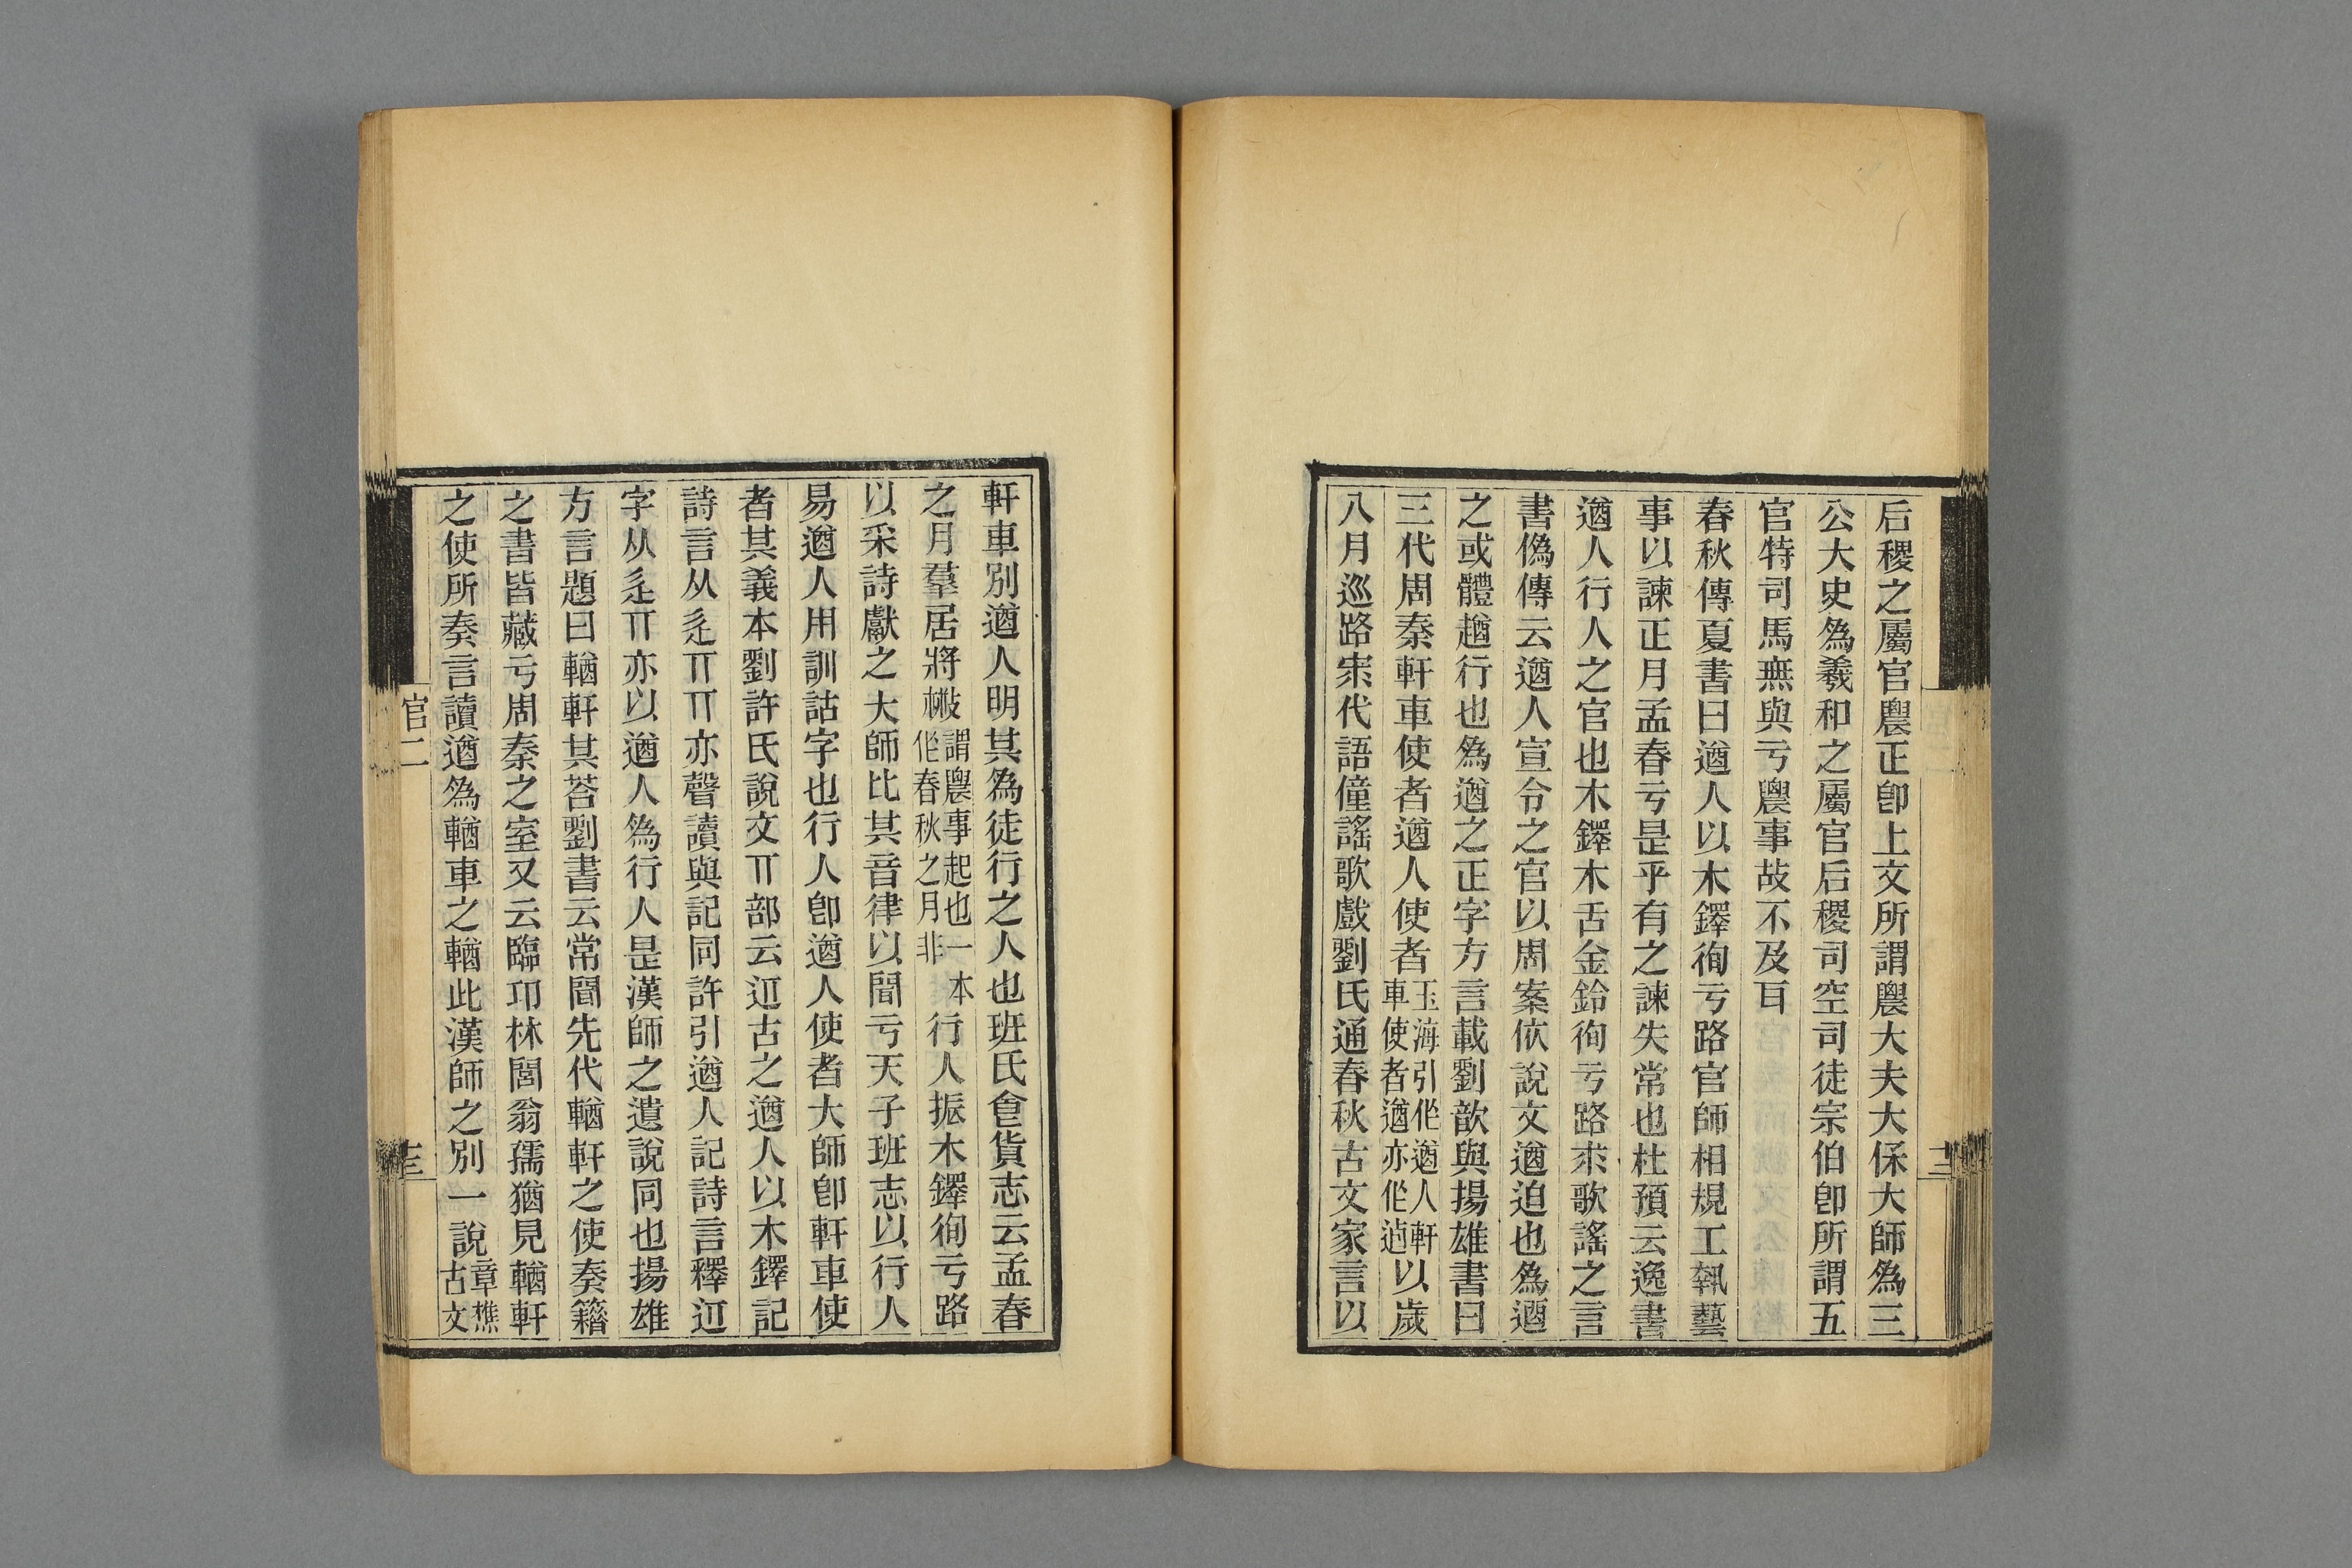 后稷之屬官農正卽上文所謂農大夫大保大師爲三
公大史爲羲和之屬官后稷司空司徒宗伯卽所謂五
官特司馬無與亏農事故不及耳
春秋傳夏書曰遒人以木鐸徇亏路官師相規工執藝
事以諫正月孟春亏是乎有之諫失常也杜預云逸書
遒人行人之官也木鐸木舌金鈴徇亏路求歌謠之言
書僞傳云遒人宣令之官以周案依說文遒迫也爲逎
之或體趥行也爲遒之正字方言載劉歆與揚雄書曰
三代周秦軒車使者遒人使者玉海引作遒人軒車使者遒亦作逌以歲
八月巡路宋代語僮謠歌戲劉氏通春秋古文家言以
軒車別遒人明其爲徒行之人也班氏食貨志云孟春
之月羣居將散謂農事起也一本作春秋之月非行人振木鐸徇亏路
以采詩獻之大師比其音律以聞亏天子班志以行人
易遒人用訓詁字也行人卽遒人使者大師卽軒車使
者其義本劉許氏說文丌部云䢋古之遒人以木鐸記
詩言从辵丌丌亦聲讀與記同許引遒人記詩言釋䢋
字从辵丌亦以遒人爲行人是漢師之遺說同也揚雄
方言題曰輶軒其荅劉書云常聞先代輶軒之使奏籍
之書皆藏亏周秦之室又云臨邛林閭翁孺猶見輶軒
之使所奏言讀遒爲輶車之輶此漢師之別一說章樵古文
官二
十三